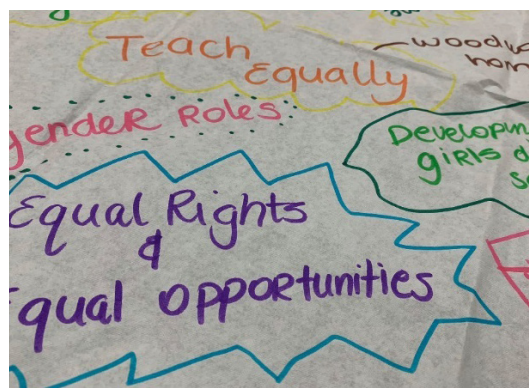 Teach
Equally
gender Roles
Developin
girls
Equal Rights
&
Equal opportunities